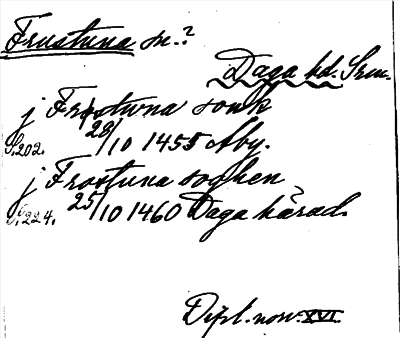 Frustuna sn.?
Daga hd. Srm.
j Frostwna sonk
S.202. 28/10 1455 Aby.
j Frostuna soghen
S.224. 25/10 1460 Daga härad.
Dipl. norv. XVI.